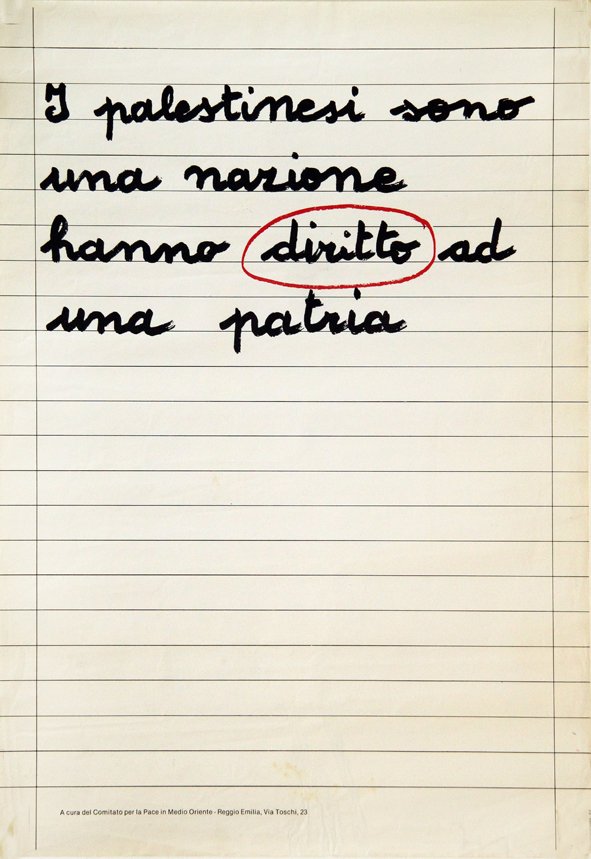 I palestinesi sono
una nazione
hanno diritto ad
una patria
A cura del Comitato per la Pace in Medio Oriente - Reggio Emilia, Via Toschi, 23